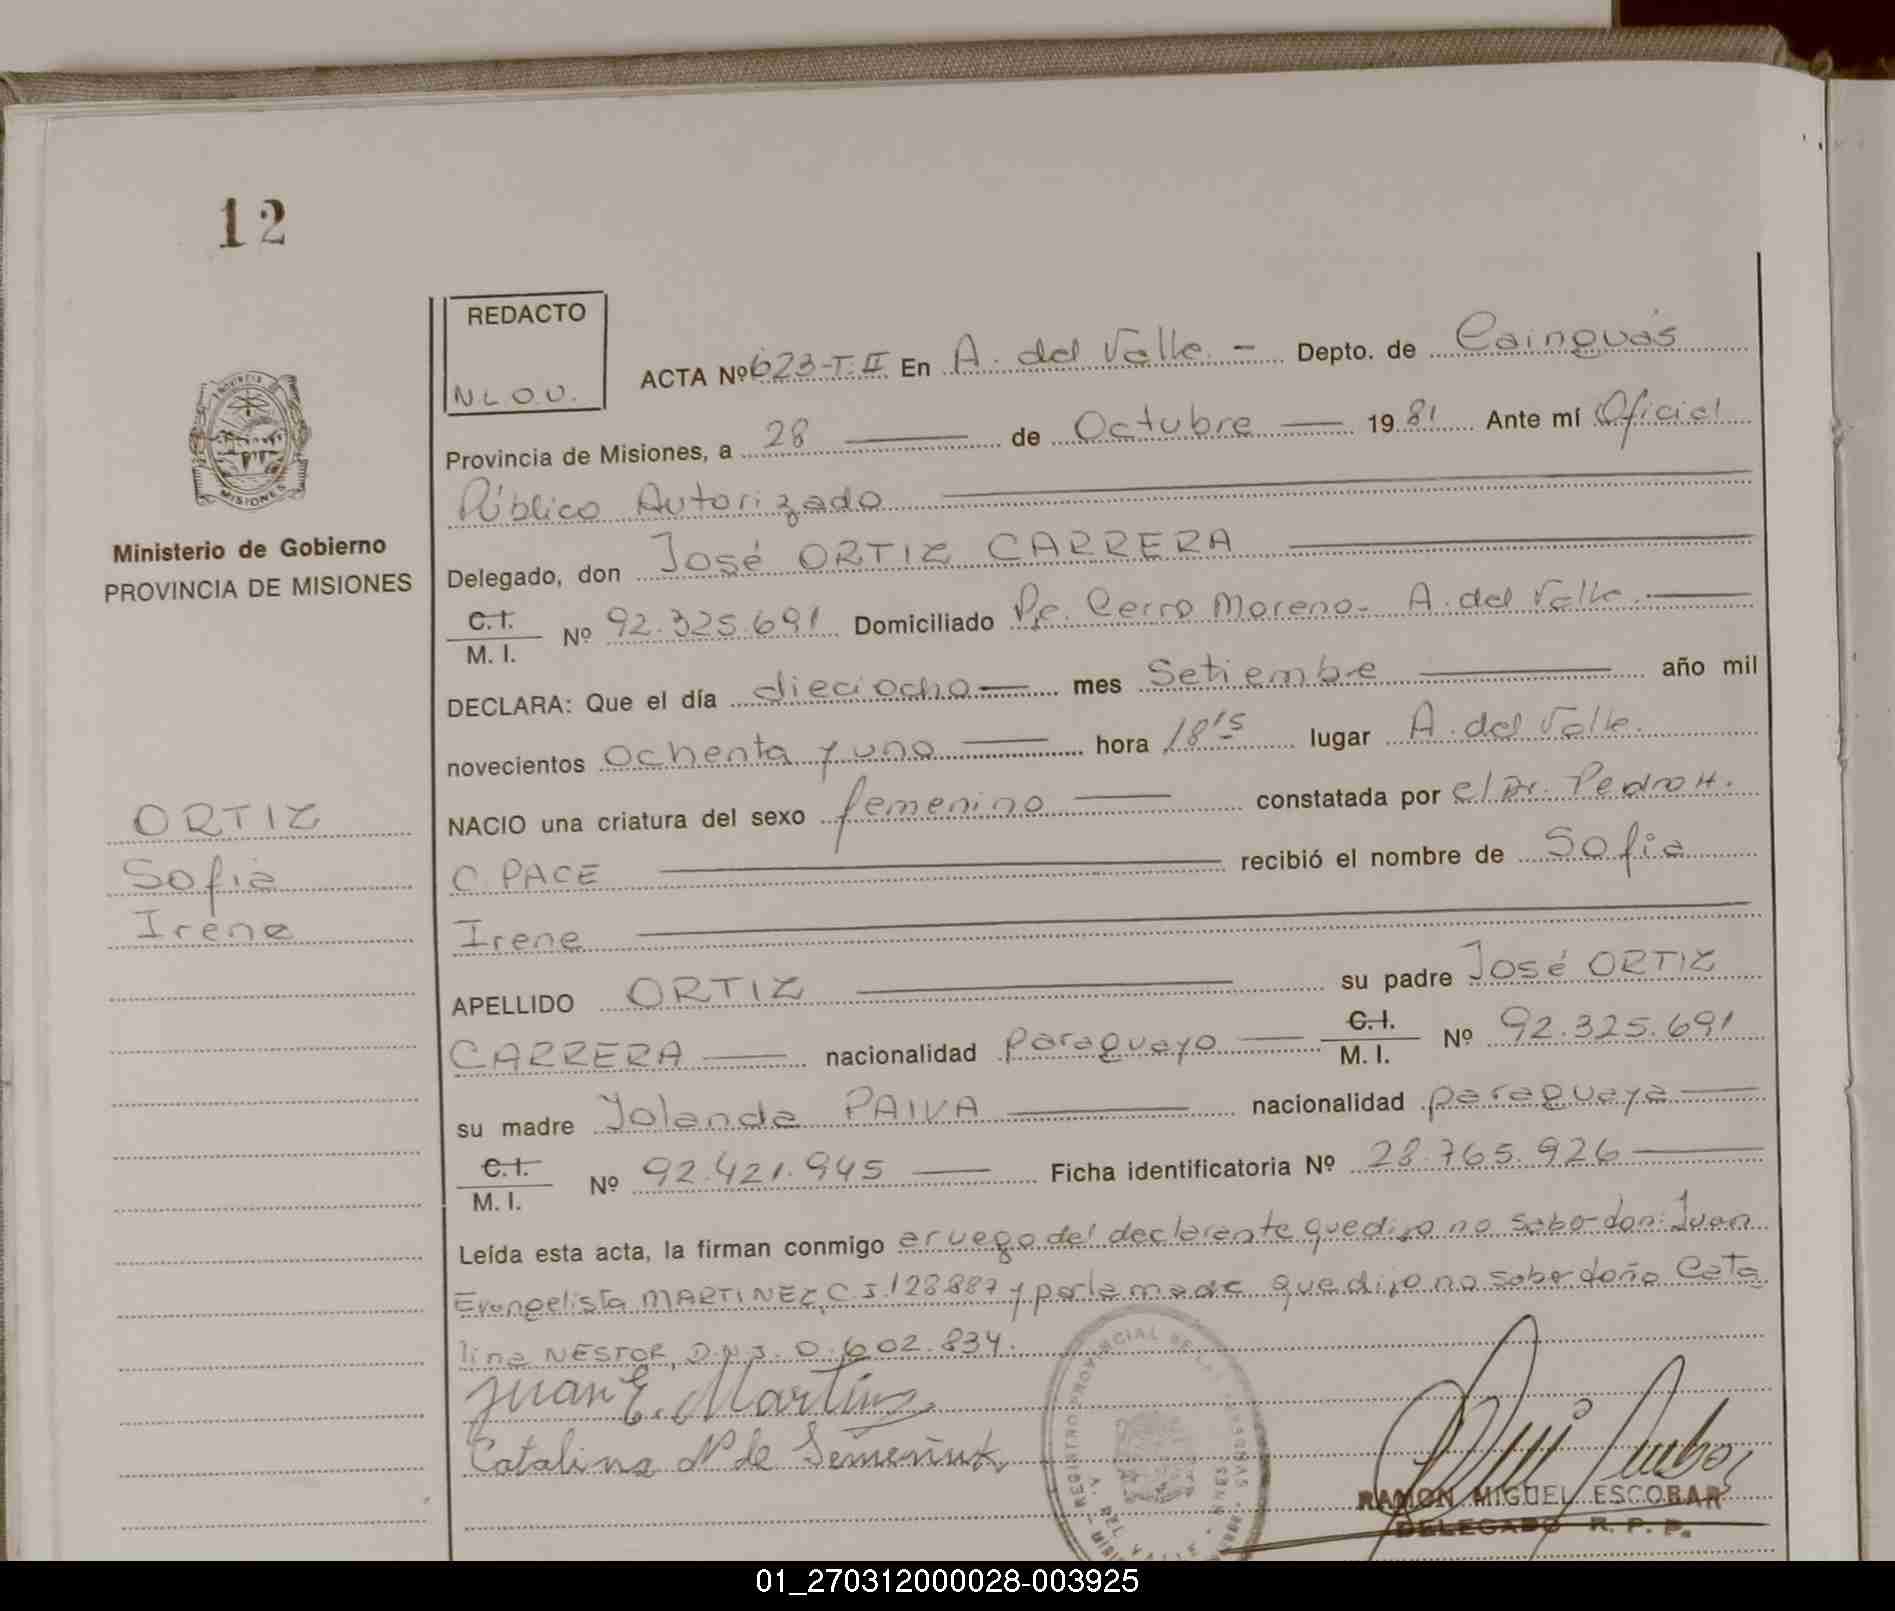 12
REDACTO
N.L.O.U.
ACTA Nº 623-T.II En A. del Valle.- Depto. de Cainguás
Provincia de Misiones, a 28 de Octubre 1981 Ante mí Oficial
Público Autorizado
Delegado, don José ORTIZ CARRERA
C.I. / M. I. Nº 92.325.691 Domiciliado Pje. Cerro Moreno- A. del Valle.
DECLARA: Que el día dieciocho mes Setiembre año mil
novecientos ochenta y uno hora 18'5 lugar A. del Valle.
NACIO una criatura del sexo femenino constatada por el Dr. Pedro H.
C. PACE recibió el nombre de Sofia
Irene
APELLIDO ORTIZ su padre José ORTIZ
CARRERA nacionalidad paraguayo C.I. / M. I. Nº 92.325.691
su madre Yolanda PAIVA nacionalidad paraguaya
C.I. / M. I. Nº 92.421.945 Ficha identificatoria Nº 28.765.926
Leída esta acta, la firman conmigo a ruego del declarante que dijo no saber don: Juan
Evangelista MARTINEZ, C.I. 128.887 y por la madre que dijo no saber doña Cata
lina NESTOR, D.N.I. 0.602.834.
Juan E. Martinez
Catalina N de Semeñuk
RAMON MIGUEL ESCOBAR
DELEGADO R. P. P.
PROVINCIA DE
MISIONES
Ministerio de Gobierno
PROVINCIA DE MISIONES
ORTIZ
Sofia
Irene
REGISTRO PROVINCIAL DE LAS PERSONAS
A. DEL VALLE
01_270312000028-003925